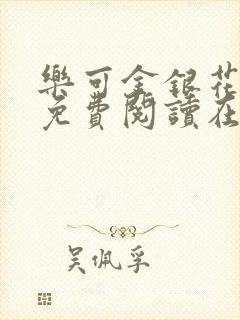 樂可金銀花
免費閱讀在
吴佩孚